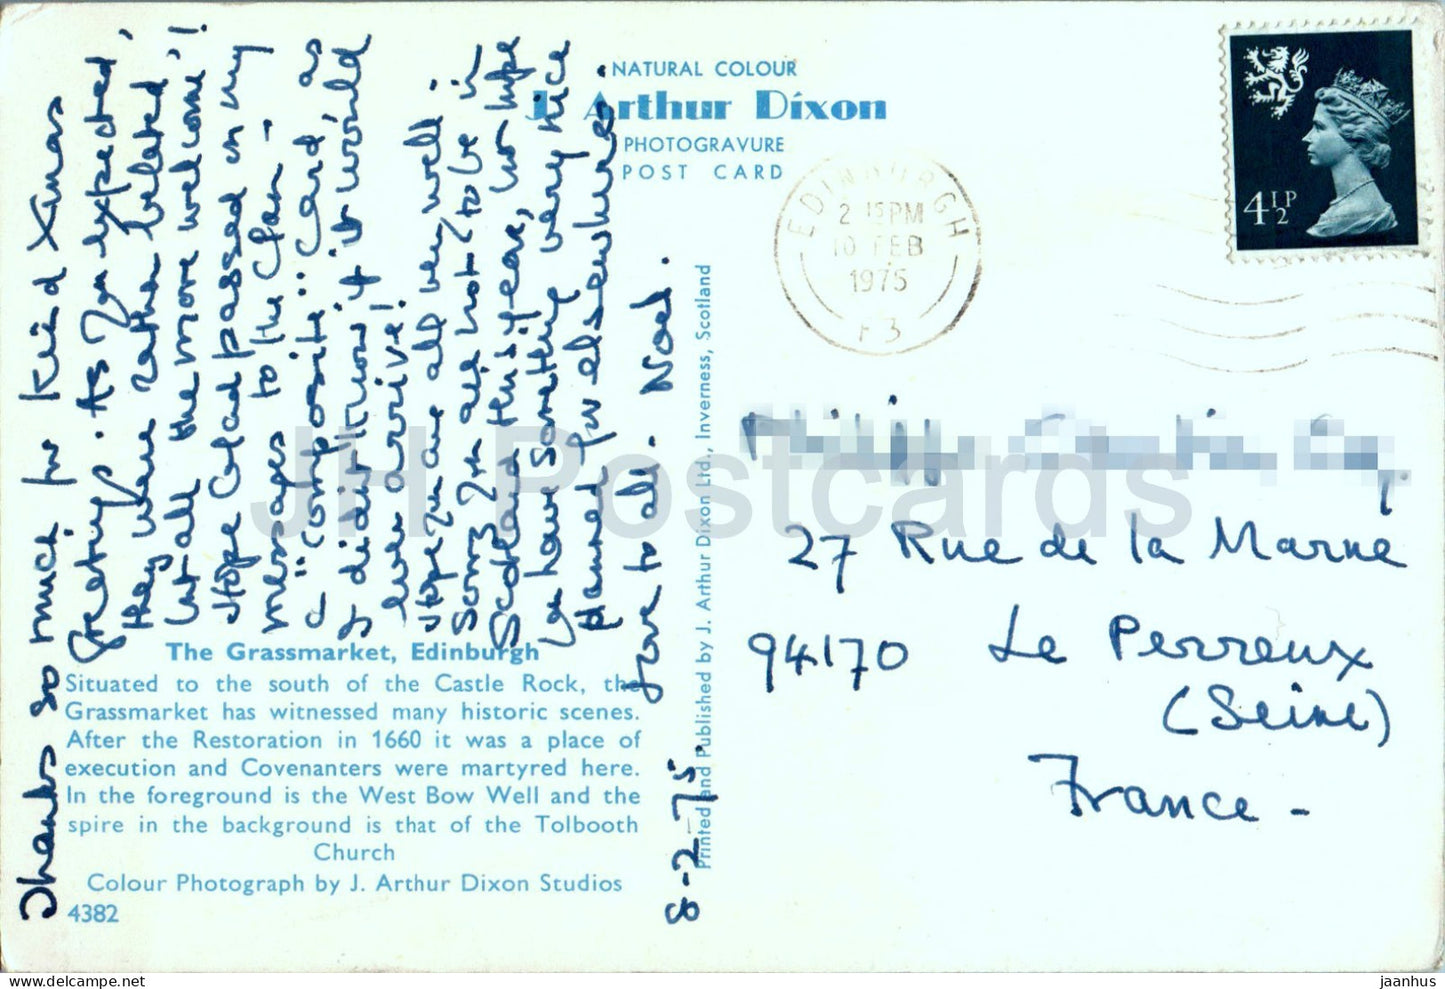 NATURAL COLOUR
J. Arthur Dixon
PHOTOGRAVURE
POST CARD
EDINBURGH
2 15 PM
10 FEB
1975
F3
4½P
Thanks so much for kind Xmas
Greetings. As you expected,
they were rather belated
but all the more welcome!
Hope Cofad passed on my
messages to the Cfan -
a "composite" card, as
I didn't know if it would
ever arrive!
Hope you are all very well.
Sorry you are not to be in
Scotland this year, but hope
you have something very nice
planned for elsewhere.
Love to all. Noel.
8-2-75.
The Grassmarket, Edinburgh
Situated to the south of the Castle Rock, the
Grassmarket has witnessed many historic scenes.
After the Restoration in 1660 it was a place of
execution and Covenanters were martyred here.
In the foreground is the West Bow Well and the
spire in the background is that of the Tolbooth
Church
Colour Photograph by J. Arthur Dixon Studios
4382
Printed and Published by J. Arthur Dixon Ltd., Inverness, Scotland
27 Rue de la Marne
94170 Le Perreux
(Seine)
France -
JH Postcards
jaanhus